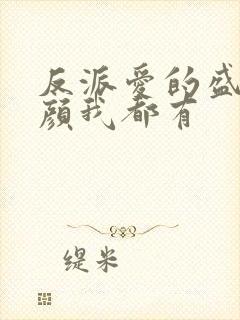 反派爱的盛
颜我都有
缇米